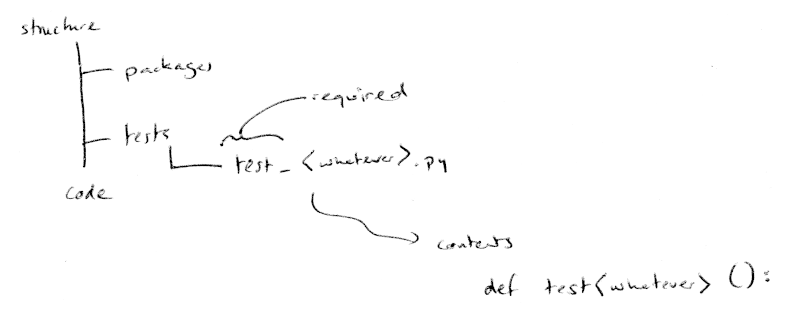 structure
packages
required
tests
test_<whatever>.py
code
contents
def test<whatever> ():